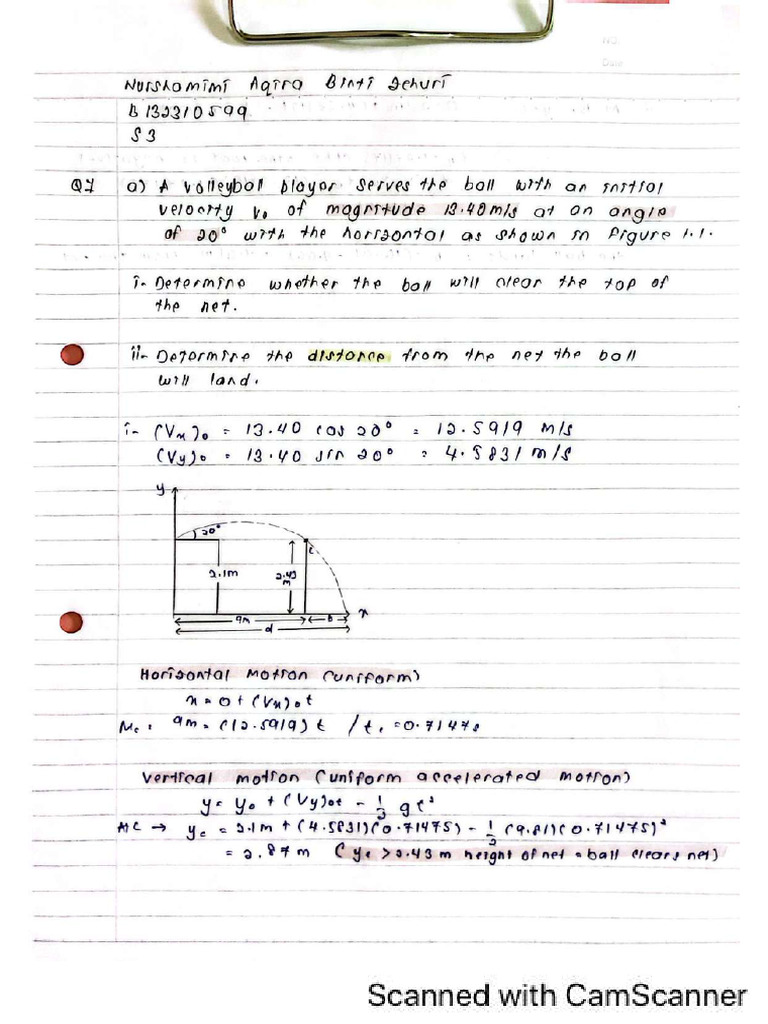 Nurshamimi Aqira Binti Zehuri
B132310599
S3
Q1 a) A volleyball player serves the ball with an initial
velocity v₀ of magnitude 13.40 m/s at an angle
of 20° with the horizontal as shown in Figure 1.1.
i- Determine whether the ball will clear the top of
the net.
ii- Determine the distance from the net the ball
will land.
i- (Vx)₀ = 13.40 cos 20° = 12.5919 m/s
(Vy)₀ = 13.40 sin 20° = 4.5831 m/s
y
20°
C
2.1m
2.43
m
x
9m
b
d
Horizontal Motion (uniform)
x = 0 + (Vx)₀t
9m = (12.5919) t / t, = 0.7147s
Vertical motion (uniform accelerated motion)
y = y₀ + (Vy)₀t - 1/2 gt²
At C → yc = 2.1m + (4.5831)(0.71475) - 1/2 (9.81)(0.71475)²
= 2.87m (yc > 2.43 m height of net = ball clears net)
Scanned with CamScanner